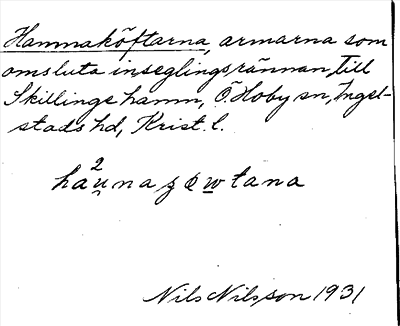 Hamnaköftarna, armarna som
omsluta inseglingsrännan till
Skillinge hamn, Ö. Hoby sn, Ingel-
stads hd, Krist. l.
Nils Nilsson 1931